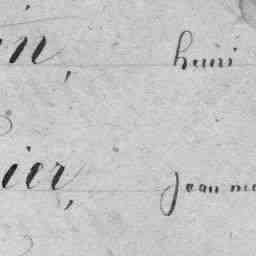 in, henri
ier, jean ma